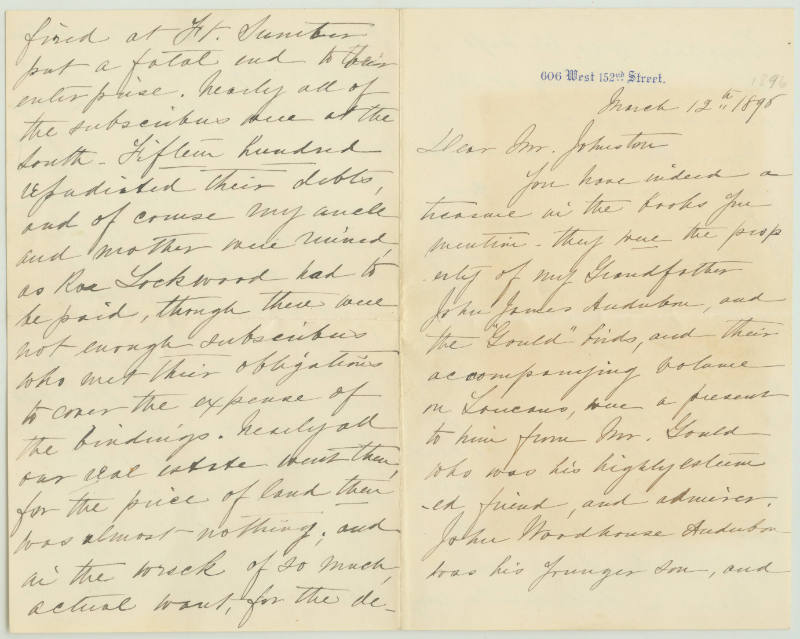 fired at Ft. Sumter
put a fatal end to their
enterprise. Nearly all of
the subscribers were at the
South - Fifteen hundred
repudiated their debts,
and of course my uncle
and mother were ruined,
as Roe Lockwood had to
be paid, though there were
not enough subscribers
who met their obligations
to cover the expense of
the bindings. Nearly all
our real estate went then,
for the price of land then
was almost nothing; and
in the wreck of so much,
actual want, for the de-
606 West 152nd Street.
1896
March 12th 1896
Dear Mr. Johnston
You have indeed a
treasure in the books you
mention - they were the prop
-erty of my Grandfather
John James Audubon, and
the "Gould" birds, and their
accompanying volume
on Toucans, were a present
to him from Mr. Gould
who was his highly esteem
-ed friend, and admirer.
John Woodhouse Audubon
was his younger son, and